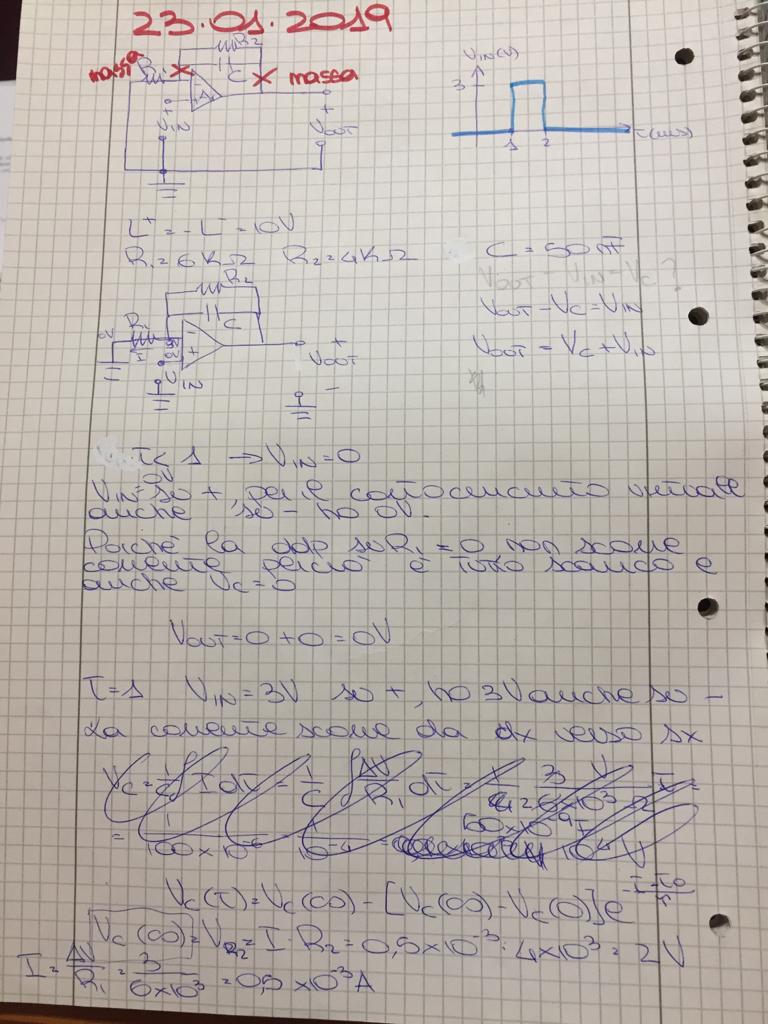 23.01.2019
massa R1 R2 C A massa
+ VIN
+ VOUT -
VIN(V)
3
1 2 t(ms)
L+ = -L- = 10V
R1 = 6KΩ R2 = 4KΩ C = 50nF
VOUT - VIN = VC?
VOUT - VC = VIN
VOUT = VC + VIN
R2
C
0V R1 I - + VIN
+ VOUT -
t < 1 → VIN = 0
VIN = 0V so +, per il cortocircuito virtuale
anche so - ho 0V.
Poiché la ddp su R1 = 0 non scorre
corrente perciò è tutto scarico e
anche VC = 0
VOUT = 0 + 0 = 0V
t = 1 VIN = 3V so +, ho 3V anche so -
La corrente scorre da dx verso sx
VC(t) = VC(∞) - [VC(∞) - VC(0)]e^-(t-t0)/τ
VC(∞) = VR2 = I · R2 = 0,5×10^-3 · 4×10^3 = 2V
I = ΔV/R1 = 3/6×10^3 = 0,5 ×10^-3 A